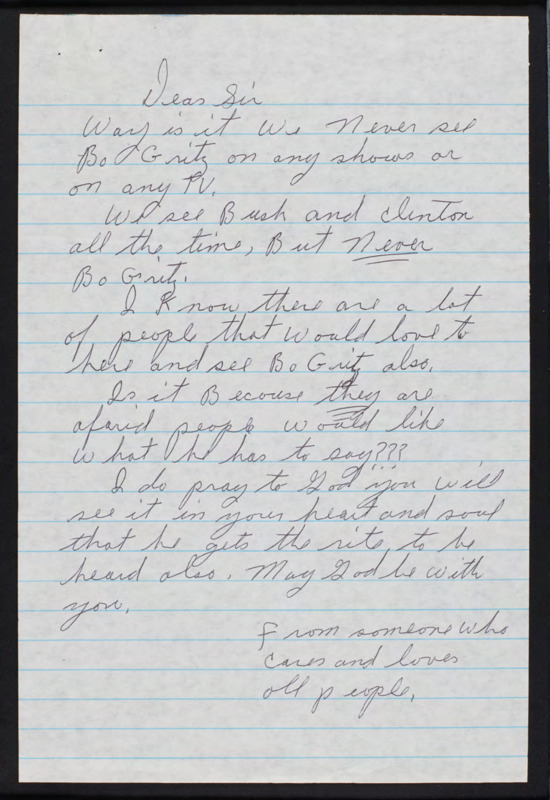 Dear Sir
Way is it We Never see
Bo Gritz on any shows or
on any TV.
We see Bush and Clinton
all the time, But Never
Bo Gritz.
I Know there are a lot
of people that would love to
here and see Bo Gritz also.
Is it Because they are
afarid people would like
what he has to say???
I do pray to God you will
see it in your heart and soul
that he gets the rite to be
heard also. May God be with
you.
From someone who
cares and loves
all people.